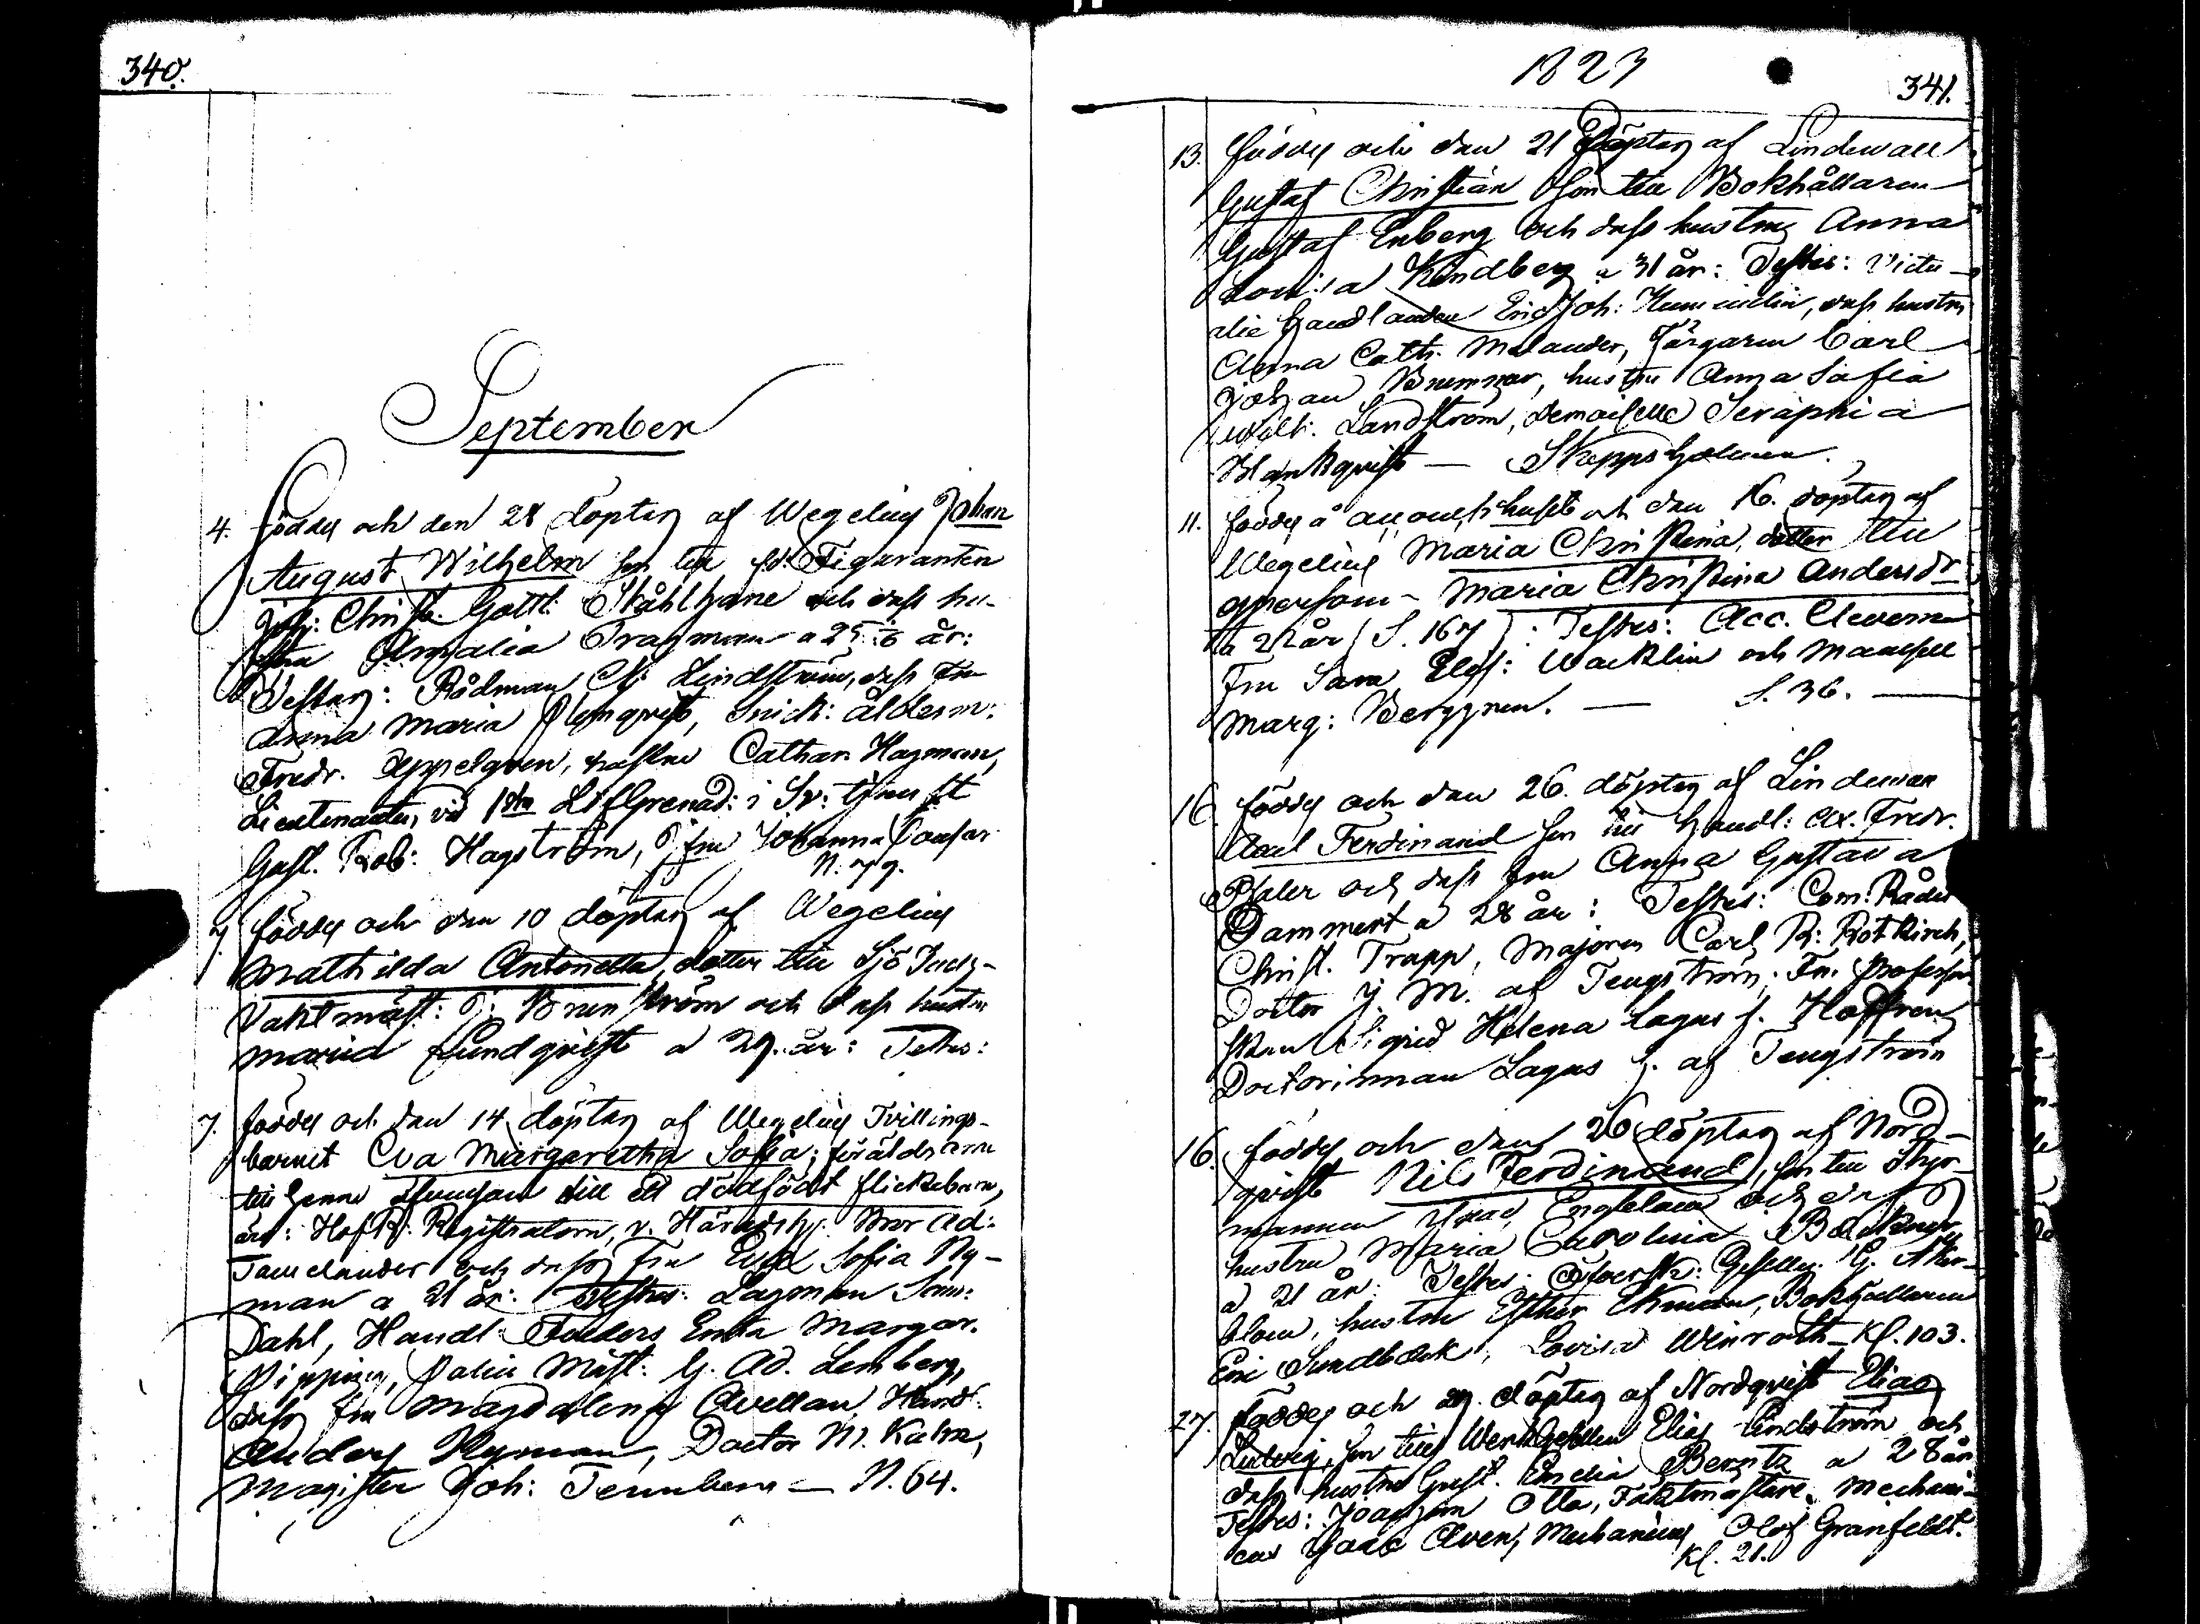 340.
September
4. föddes och den 28 döptes af Wegelius Johan
August Wilhelm son till Figuranten
Joh: Christ. Gottl: Ståhlhane och dess hu-
stru Amalia Tragman a 25 år:
Testes: Rådman Lindström, dess Fru
Anna Maria Blomqvist, Snick: ålderm:
Fredr. Appelgren, hustru Cathar. Hagman,
Lieutenanten vid 1sta LifGrenad: i Sv: tjenst
Gust. Rob: Hagström, fru Johanna
N. 79.
7. föddes och den 10 döptes af Wegelius
Mathilda Antonetta, dotter till Sjö Tull-
Vaktmäst: Brunström och dess hustru
Maria Lundqvist a 29. år: Testes:
7. föddes och den 14 döptes af Wegelius Tvillings-
barnet Eva Margaretha Sofia; föräldrarne
till henne äfvensom till ett dödfödt flickebarn,
äro: HofR: Registratorn, v. Häradsh: Ad:
Tamelander och dess Fru Eva Sofia Ny-
man a 21 år: Testes: Lagman
Dahl, Handl: Enka Margar.
Pipping, Mäst: G. Ad. Lemberg,
dess fru Magdalena Avellan, Handl:
Anders Nyman, Doctor M. Kalm,
Magister Joh: Tennberg — N. 64.
1823
341.
13. föddes och den 21 döptes af Lindewall
Gustaf Christian Son till Bokhållaren
Gustaf Enberg och dess hustru Anna
Lovisa Kindberg a 31 år: Testes: Victu-
alie Handlanden Eric Joh: Hummelin, dess hustru
Anna Cath. Melander, Färgaren Carl
Johan Brummer, hustru Anna Sofia
Landström, Demoiselle Seraphia
Blankqvist — Skeppsholmen.
11. föddes å Accouch:huset och den 16. döptes af
Wegelius Maria Christina, dotter till
qpersonen Maria Christina Andersdr
a 22 år (S. 167): Testes: Acc. Eleverne
Fru Sara Elis: Wacklin och Mamsell
Marg: Berggren. — S. 36. —
16. föddes och den 26. döptes af Lindewall
Axel Ferdinand son till Handl: Ax. Fredr.
Phaler och dess fru Anna Gustava
Dammert a 28 år: Testes: Com: Rådet
Christ. Trapp, Majoren Carl R: Rotkirch,
Doctor J. M. af Tengström; Fru Professor-
skan Sigrid Helena Lagus f. Hoffren
Doctorinnan Lagus f. af Tengström
16. föddes och den 26 döptes af Nord-
qvist Nils Ferdinand, son till Styr-
mannen Isac Engblom och dess
hustru Maria Carolina Backman
a 21 år: Testes: Gesellen G. Åker-
blom, hustru Esther Ekman, Bokhållaren
Eric Sundbäck, Lovisa Winroth — Kl. 103.
27. föddes och 29. döptes af Nordqvist Elias
Ludvig, son till WerkGesellen Elias Lindström och
dess hustru Gust. Emelia Berntz a 28 år
Testes: Joachim Otta, Faktmästare, Mechani-
cus Isaac Aven, Mechanicus Olof Granfeldt.
Kl. 21.